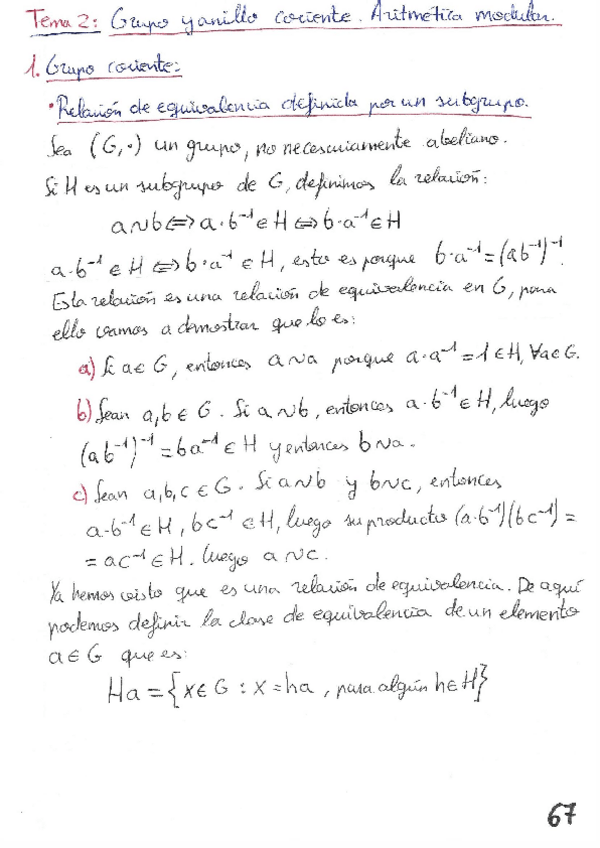 Tema 2: Grupo y anillo cociente. Aritmética modular.
1. Grupo cociente:
• Relación de equivalencia definida por un subgrupo.
Sea (G,·) un grupo, no necesariamente abeliano.
Si H es un subgrupo de G, definimos la relación:
a∼b⇔a·b⁻¹∈H⇔b·a⁻¹∈H
a·b⁻¹∈H⇔b·a⁻¹∈H, esto es porque b·a⁻¹=(ab⁻¹)⁻¹.
Esta relación es una relación de equivalencia en G, para
ello vamos a demostrar que lo es:
a) Si a∈G, entonces a∼a porque a·a⁻¹=1∈H, ∀a∈G.
b) Sean a,b∈G. Si a∼b, entonces a·b⁻¹∈H, luego
(ab⁻¹)⁻¹=ba⁻¹∈H y entonces b∼a.
c) Sean a,b,c∈G. Si a∼b y b∼c, entonces
a·b⁻¹∈H, bc⁻¹∈H, luego su producto (a·b⁻¹)(bc⁻¹)=
=ac⁻¹∈H. Luego a∼c.
Ya hemos visto que es una relación de equivalencia. De aquí
podemos definir la clase de equivalencia de un elemento
a∈G que es:
Ha={x∈G : x=ha, para algún h∈H}
67